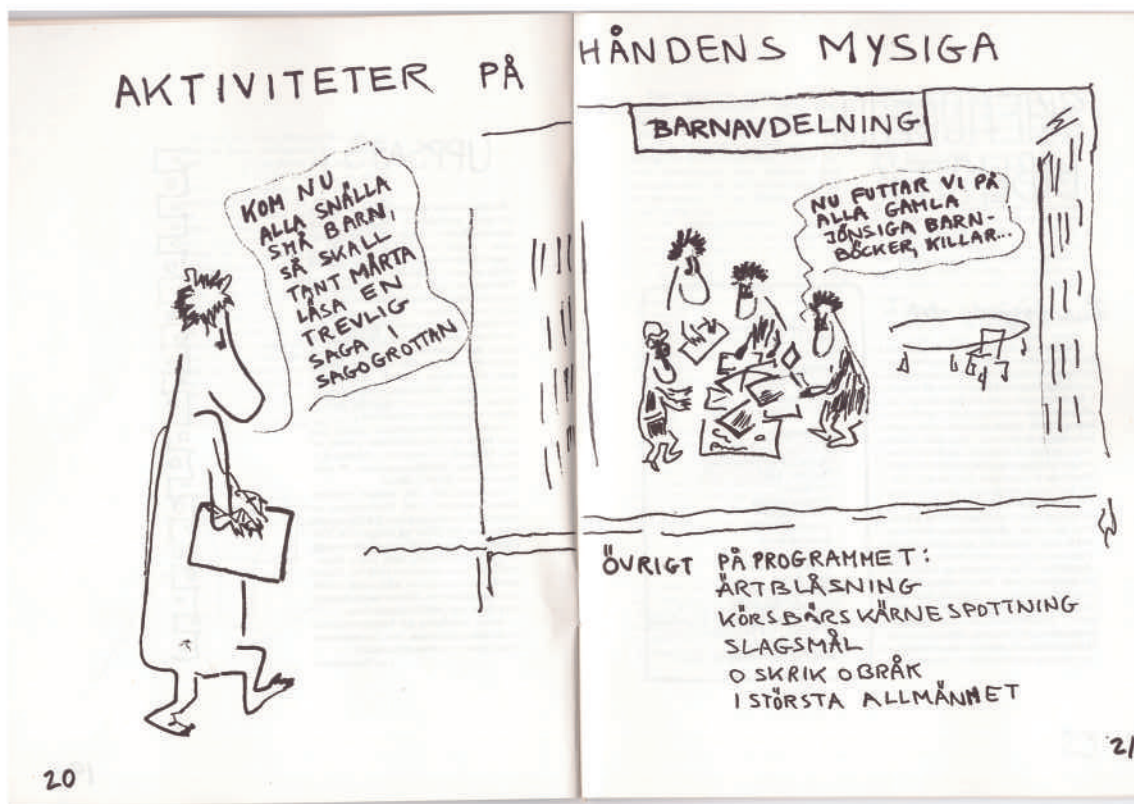 AKTIVITETER PÅ HÅNDENS MYSIGA
BARNAVDELNING
KOM NU
ALLA SNÄLLA
SMÅ BARN,
SÅ SKALL
TANT MÄRTA
LÄSA EN
TREVLIG
SAGA I
SAGOGROTTAN
NU FUTTAR VI PÅ
ALLA GAMLA
JÖNSIGA BARN-
BÖCKER, KILLAR...
ÖVRIGT PÅ PROGRAMMET:
ÄRTBLÅSNING
KÖRSBÄRSKÄRNESPOTTNING
SLAGSMÅL
O SKRIK O BRÅK
I STÖRSTA ALLMÄNHET
20
21